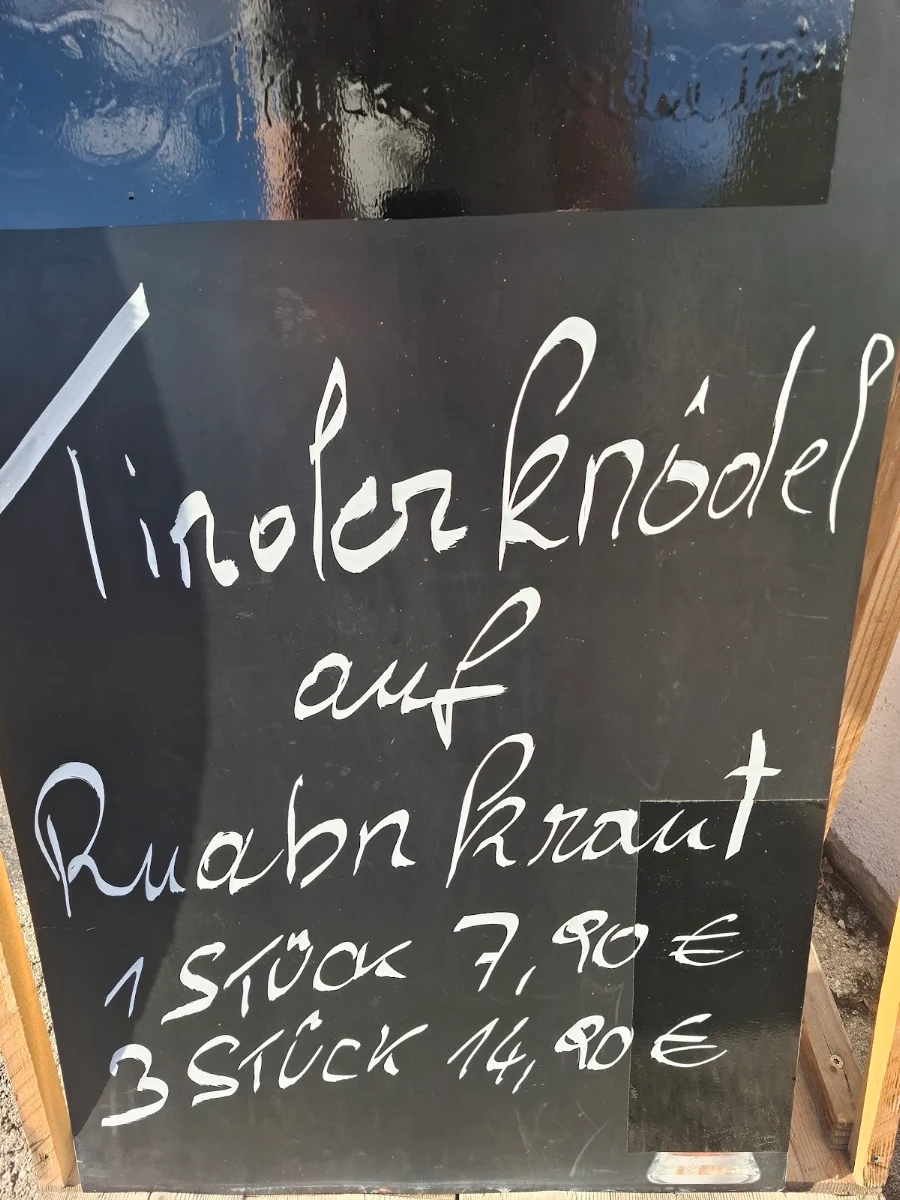 Tirolerknödel
auf
Ruabnkraut
1 STÜCK 7,90 €
3 STÜCK 14,90 €